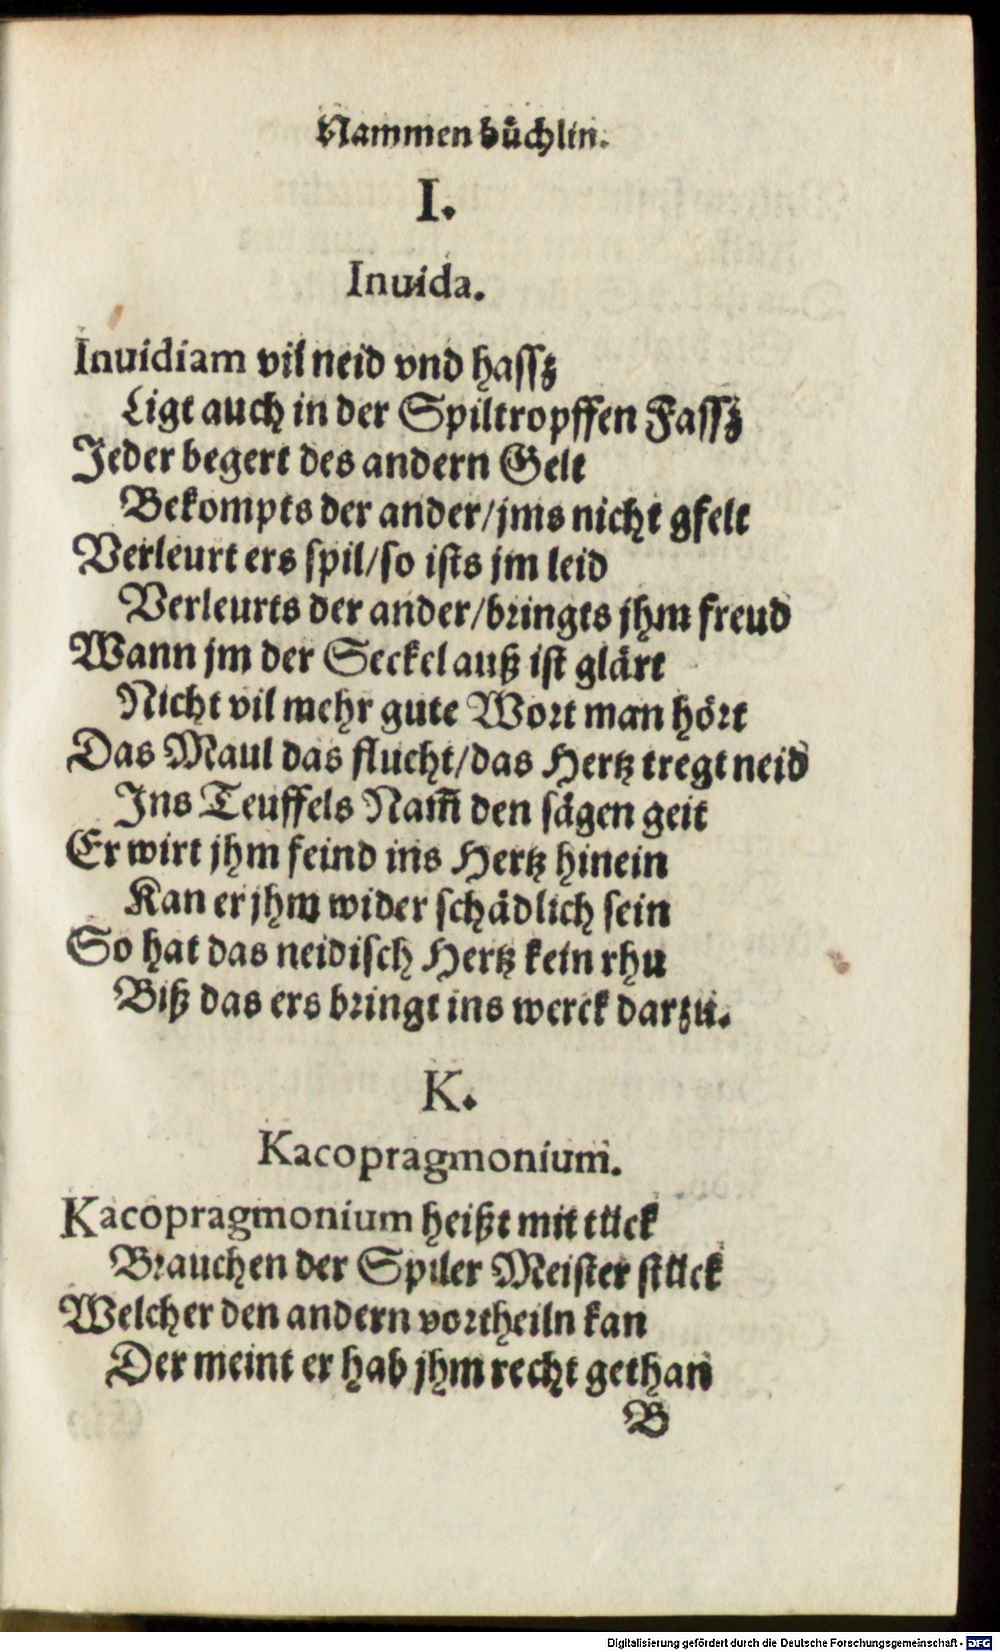 Nammen buͤchlin.
I.
Inuida.
Inuidiam vil neid vnd hassz
Ligt auch in der Spiltropffen Fassz
Jeder begert des andern Gelt
Bekompts der ander/jms nicht gfelt
Verleurt ers spil/so ists jm leid
Verleurts der ander/bringts jhm freud
Wann jm der Seckel auß ist glärt
Nicht vil mehr gute Wort man hört
Das Maul das flucht/das Hertz tregt neid
Ins Teuffels Nam̃ den sägen geit
Er wirt jhm feind ins Hertz hinein
Kan er jhm wider schädlich sein
So hat das neidisch Hertz kein rhu
Biß das ers bringt ins werck darzu.
K.
Kacopragmonium.
Kacopragmonium heißt mit tück
Brauchen der Spiler Meister stück
Welcher den andern vortheiln kan
Der meint er hab jhm recht gethan
B
Digitalisierung gefördert durch die Deutsche Forschungsgemeinschaft - DFG